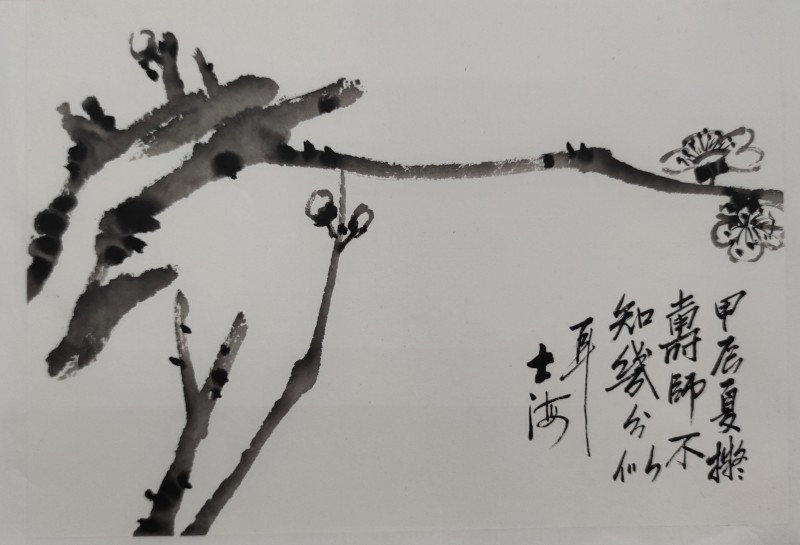 甲辰夏擬
壽師不
知幾分似
耳
士海